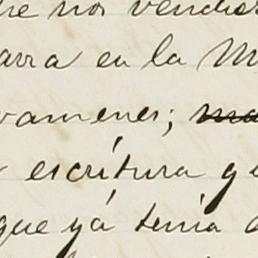 he nos vendier
arra en la M
vamenes; ma
escritura q
que yá tenia